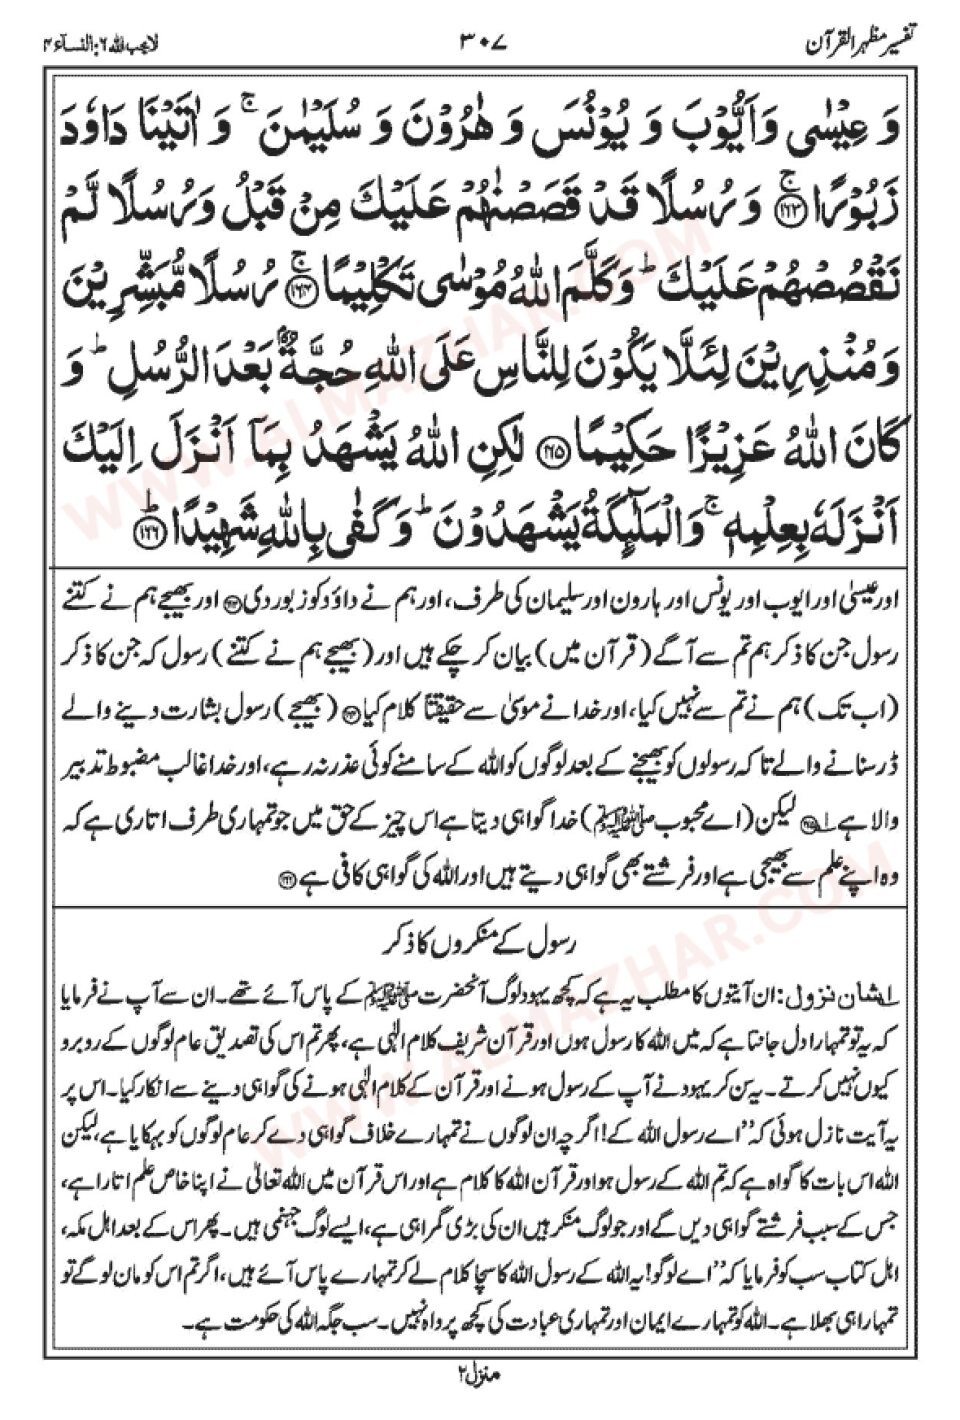 تفسیر مظہر القرآن
۳۰۷
لایحب اللہ ۶: النسآء ۴
وَ عِيْسٰى وَ اَيُّوْبَ وَ يُوْنُسَ وَ هٰرُوْنَ وَ سُلَيْمٰنَ ۚ وَ اٰتَيْنَا دَاوٗدَ
زَبُوْرًا ۚ﴿۱۶۳﴾ وَ رُسُلًا قَدْ قَصَصْنٰهُمْ عَلَيْكَ مِنْ قَبْلُ وَ رُسُلًا لَّمْ
نَقْصُصْهُمْ عَلَيْكَ ؕ وَ كَلَّمَ اللّٰهُ مُوْسٰى تَكْلِيْمًا ۚ﴿۱۶۴﴾ رُسُلًا مُّبَشِّرِيْنَ
وَ مُنْذِرِيْنَ لِئَلَّا يَكُوْنَ لِلنَّاسِ عَلَى اللّٰهِ حُجَّةٌۢ بَعْدَ الرُّسُلِ ؕ وَ
كَانَ اللّٰهُ عَزِيْزًا حَكِيْمًا ﴿۱۶۵﴾ لٰكِنِ اللّٰهُ يَشْهَدُ بِمَآ اَنْزَلَ اِلَيْكَ
اَنْزَلَهٗ بِعِلْمِهٖ ۚ وَ الْمَلٰٓىِٕكَةُ يَشْهَدُوْنَ ؕ وَ كَفٰى بِاللّٰهِ شَهِيْدًا ؕ﴿۱۶۶﴾
اور عیسیٰ اور ایوب اور یونس اور ہارون اور سلیمان کی طرف، اور ہم نے داؤد کو زبور دی ﴿۱۶۳﴾ اور بھیجے ہم نے کتنے
رسول جن کا ذکر ہم تم سے آگے (قرآن میں) بیان کر چکے ہیں اور (بھیجے ہم نے کتنے) رسول کہ جن کا ذکر
(اب تک) ہم نے تم سے نہیں کیا، اور خدا نے موسیٰ سے حقیقتاً کلام کیا ﴿۱۶۴﴾ (بھیجے) رسول بشارت دینے والے
ڈر سنانے والے تاکہ رسولوں کو بھیجنے کے بعد لوگوں کو اللہ کے سامنے کوئی عذر نہ رہے، اور خدا غالب مضبوط تدبیر
والا ہے ۱ ﴿۱۶۵﴾ لیکن (اے محبوب ﷺ) خدا گواہی دیتا ہے اس چیز کے حق میں جو تمہاری طرف اتاری ہے کہ
وہ اپنے علم سے بھیجی ہے اور فرشتے بھی گواہی دیتے ہیں اور اللہ کی گواہی کافی ہے ﴿۱۶۶﴾
رسول کے منکروں کا ذکر
۱ شان نزول: ان آیتوں کا مطلب یہ ہے کہ کچھ یہود لوگ آنحضرت ﷺ کے پاس آئے تھے۔ ان سے آپ نے فرمایا
کہ یہ تو تمہارا دل جانتا ہے کہ میں اللہ کا رسول ہوں اور قرآن شریف کلام الٰہی ہے، پھر تم اس کی تصدیق عام لوگوں کے روبرو
کیوں نہیں کرتے۔ یہ سن کر یہود نے آپ کے رسول ہونے اور قرآن کے کلام الٰہی ہونے کی گواہی دینے سے انکار کیا۔ اس پر
یہ آیت نازل ہوئی کہ ''اے رسول اللہ کے! اگرچہ ان لوگوں نے تمہارے خلاف گواہی دے کر عام لوگوں کو بہکایا ہے، لیکن
اللہ اس بات کا گواہ ہے کہ تم اللہ کے رسول ہو اور قرآن اللہ کا کلام ہے اور اس قرآن میں اللہ تعالیٰ نے اپنا خاص علم اتارا ہے،
جس کے سبب فرشتے گواہی دیں گے اور جو لوگ منکر ہیں ان کی بڑی گمراہی ہے، ایسے لوگ جہنمی ہیں۔ پھر اس کے بعد اہل مکہ،
اہل کتاب سب کو فرمایا کہ ''اے لوگو! یہ اللہ کے رسول اللہ کا سچا کلام لے کر تمہارے پاس آئے ہیں، اگر تم اس کو مان لو گے تو
تمہارا ہی بھلا ہے۔ اللہ کو تمہارے ایمان اور تمہاری عبادت کی کچھ پرواہ نہیں۔ سب جگہ اللہ کی حکومت ہے۔
منزل ۲
WWW.ALMAZHAR.COM
WWW.ALMAZHAR.COM